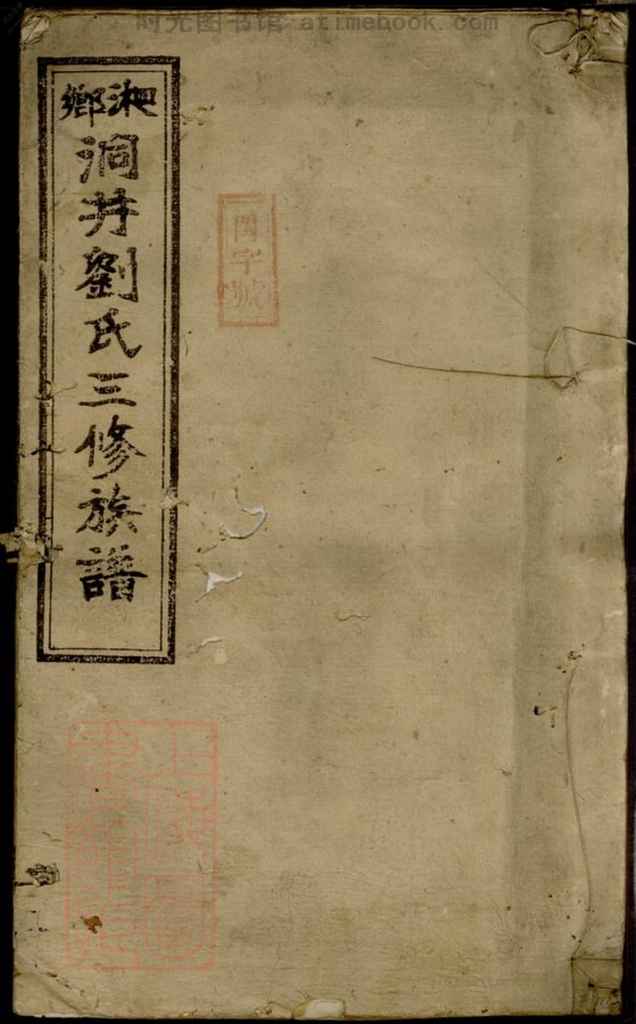 时光图书馆 atimebook.com
湘鄉
洞井劉氏三修族譜
字號